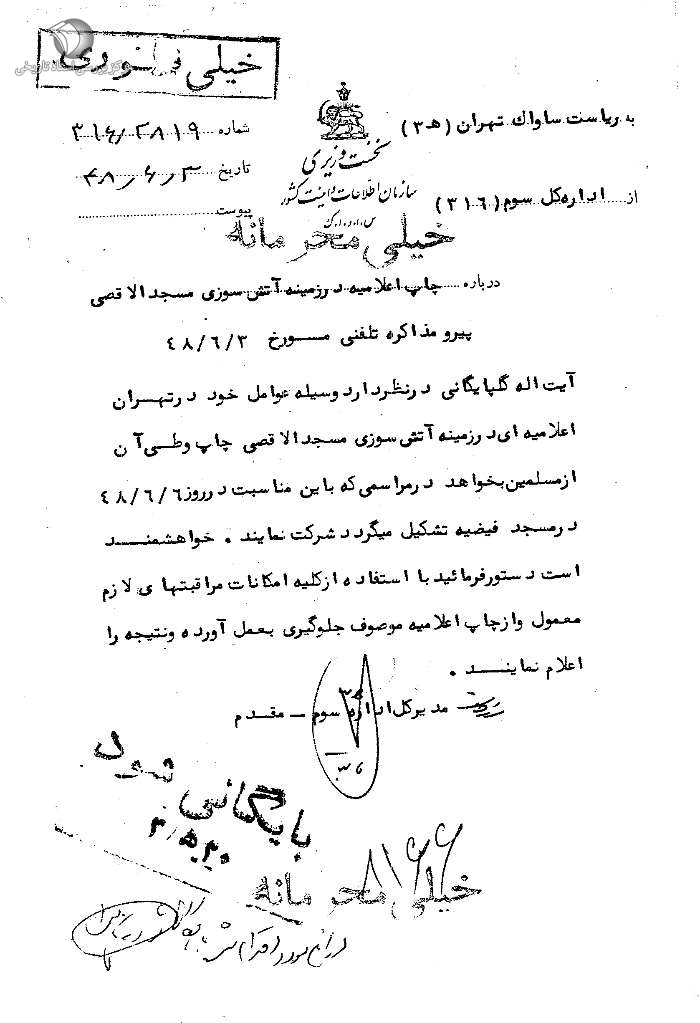 خیلی فوری
مرکز بررسی اسناد تاریخی
به ریاست ساواك تهران (ه‍ ۳)
شماره ۳۱۶/۲۸۱۹
نخست وزیری
تاریخ ۴۸/۶/۳
سازمان اطلاعات و امنیت کشور
از اداره کل سوم (۳۱٦)
س.ا.و.ا.ك
پیوست
خیلی محرمانه
درباره چاپ اعلامیه در زمینه آتش سوزی مسجد الاقصی
پیرو مذاکره تلفنی مورخ ٤٨/٦/٣
آیت اله گلپایگانی در نظر دارد وسیله عوامل خود در تهران
اعلامیه ای در زمینه آتش سوزی مسجد الاقصی چاپ و طی آن
از مسلمین بخواهد در مراسمی که باین مناسبت در روز ٤٨/٦/٦
در مسجد فیضیه تشکیل میگردد شرکت نمایند . خواهشمند
است دستور فرمائید با استفاده از کلیه امکانات مراقبتهای لازم
معمول و از چاپ اعلامیه موصوف جلوگیری بعمل آورده و نتیجه را
اعلام نمایند .
مدیر کل اداره سوم - مقدم
بایگانی شود
خیلی محرمانه